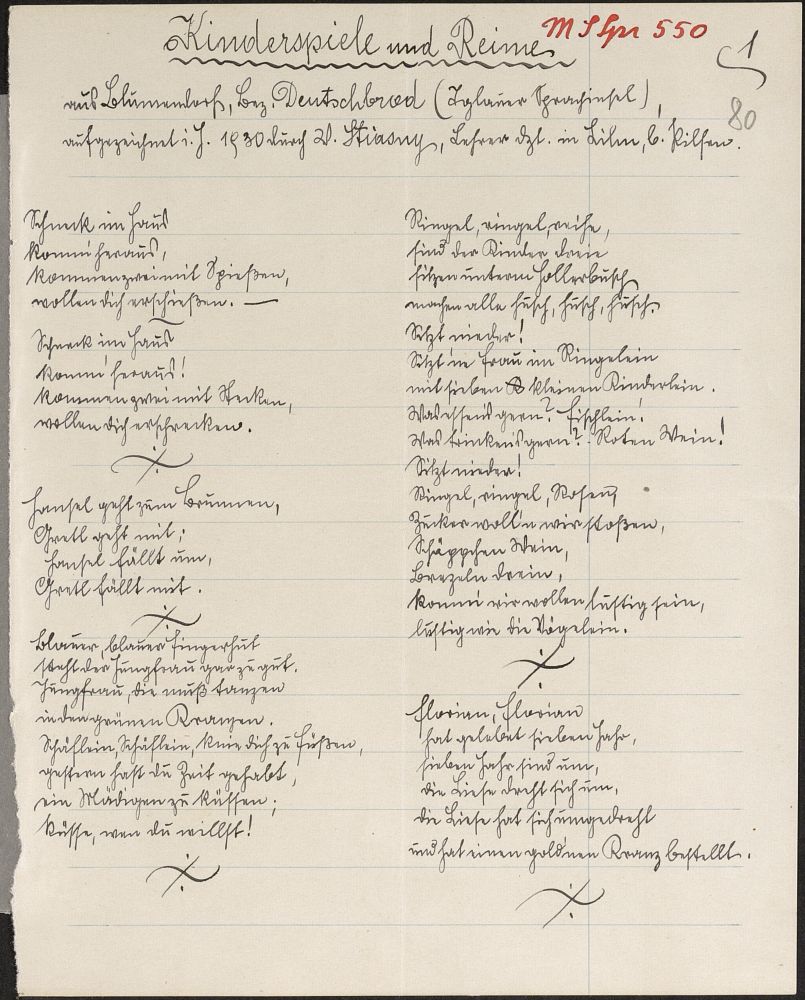 Kinderspiele und Reime
M S Gpr 550
1
80
aus Blumendorf, Bez. Deutschbrod (Iglauer Sprachinsel),
aufgezeichnet i. J. 1930 durch V. Stiasny, Lehrer dzt. in Lihn, b. Pilsen.
Schneck im Haus
komm heraus,
kommen zwei mit Spießen,
wollen dich erschießen. —
Schneck im Haus
komm heraus!
kommen zwei mit Stecken,
wollen dich erschrecken.
Hansel geht zum Brunnen,
Gretl geht mit;
Hansel fällt um,
Gretl fällt mit.
Blauer, blauer Fingerhut
steht der Jungfrau gar zu gut.
Jungfrau, die muß tanzen
in den grünen Kranzen.
Schäflein, Schäflein, knie dich zu Füßen,
gestern hast du Zeit gehabt,
ein Mädigen zu küssen;
Küsse, wen du willst!
Ringel, ringel, reihe,
sind der Kinder dreie
sitzen unterm Hollerbusch
machen alle husch, husch, husch.
Sitzt nieder!
Sitzt 'ne Frau im Ringelein
mit sieben kleinen Kinderlein.
Was essens gern? Fischlein!
Was trinkens gern? - Roten Wein!
Sitzt nieder!
Ringel, ringel, Rosen,
Zucker woll'n wir stoßen,
Schäppchen Wein,
Brezeln drein,
komm wir wollen lustig sein,
lustig wie die Vögelein.
Florian, Florian
hat gelebet sieben Jahr,
sieben Jahr sind um,
die Liese dreht sich um,
die Liese hat sich umgedreht
und hat einen gold'nen Kranz bestellt.